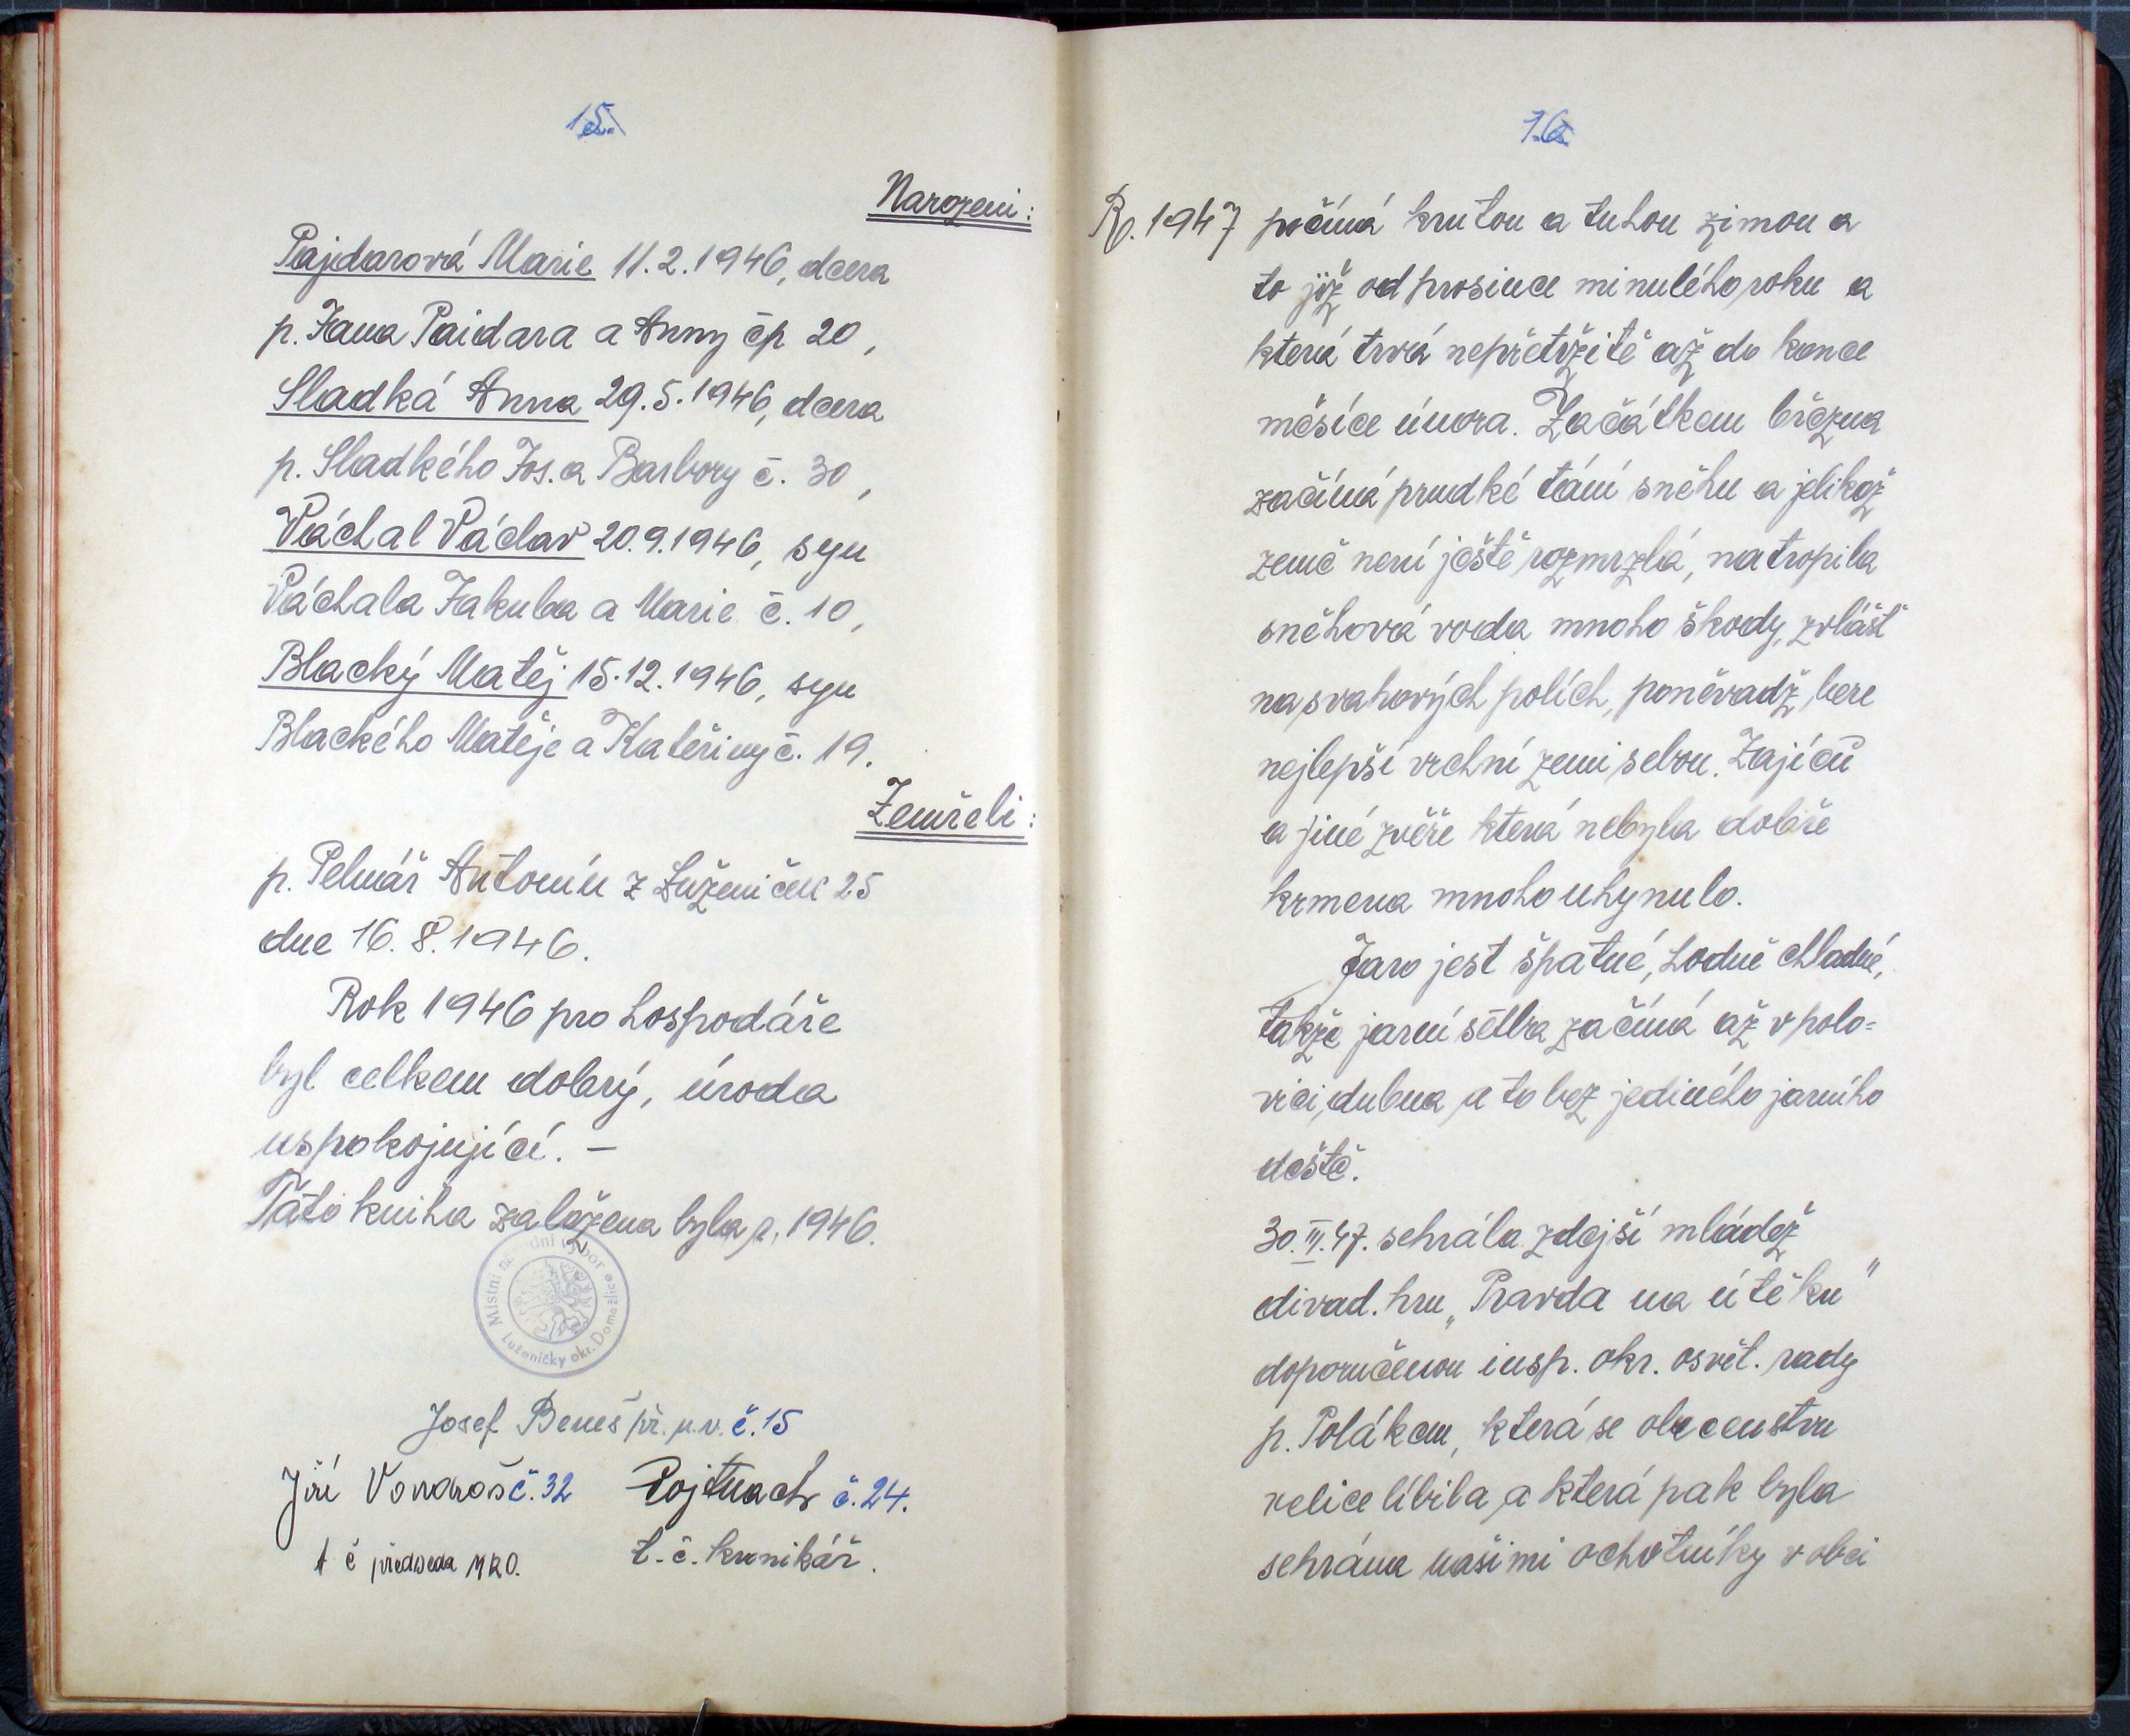 15.
Narozeni:
Pajdarová Marie 11.2.1946, dcera
p. Jana Paidara a Anny čp 20,
Sladká Anna 29.5.1946, dcera
p. Sladkého Jos. a Barbory č. 30,
Váchal Václav 20.9.1946, syn
Váchala Jakuba a Marie č. 10,
Blacký Matěj 15.12.1946, syn
Blackého Matěje a Kateřiny č. 19.
Zemřeli:
p. Pelnář Antonín z Luženiček 25
dne 16.8.1946.
Rok 1946 pro hospodáře
byl celkem dobrý, úroda
uspokojující. –
Tato kniha založena byla r. 1946.
Místní národní výbor
Luženičky okr. Domažlice
Josef Beneš př. n.v. č. 15
Jiří Vondroš č. 32 Pojtnach č. 24.
t č předseda MRO. t.č. kronikář.
16
R. 1947 počíná krutou a tuhou zimou a
to již od prosince minulého roku a
která trvá nepřetržitě až do konce
měsíce února. Začátkem března
začíná prudké tání sněhu a jelikož
země není ještě rozmrzlá, natropila
sněhová voda mnoho škody, zvlášť
na svahových polích, poněvadž bere
nejlepší vrchní zemi sebou. Zajíců
a jiné zvěře která nebyla dobře
krmena mnoho uhynulo.
Jaro jest špatné, hodně chladné,
takže jarní setba začíná až v polo=
vici dubna a to bez jediného jarního
deště.
30.III.47. sehrála zdejší mládež
divad. hru „Pravda na útěku"
doporučenou insp. okr. osvět. rady
p. Polákem, která se obecenstvu
velice líbila, a která pak byla
sehrána našimi ochotníky v obci